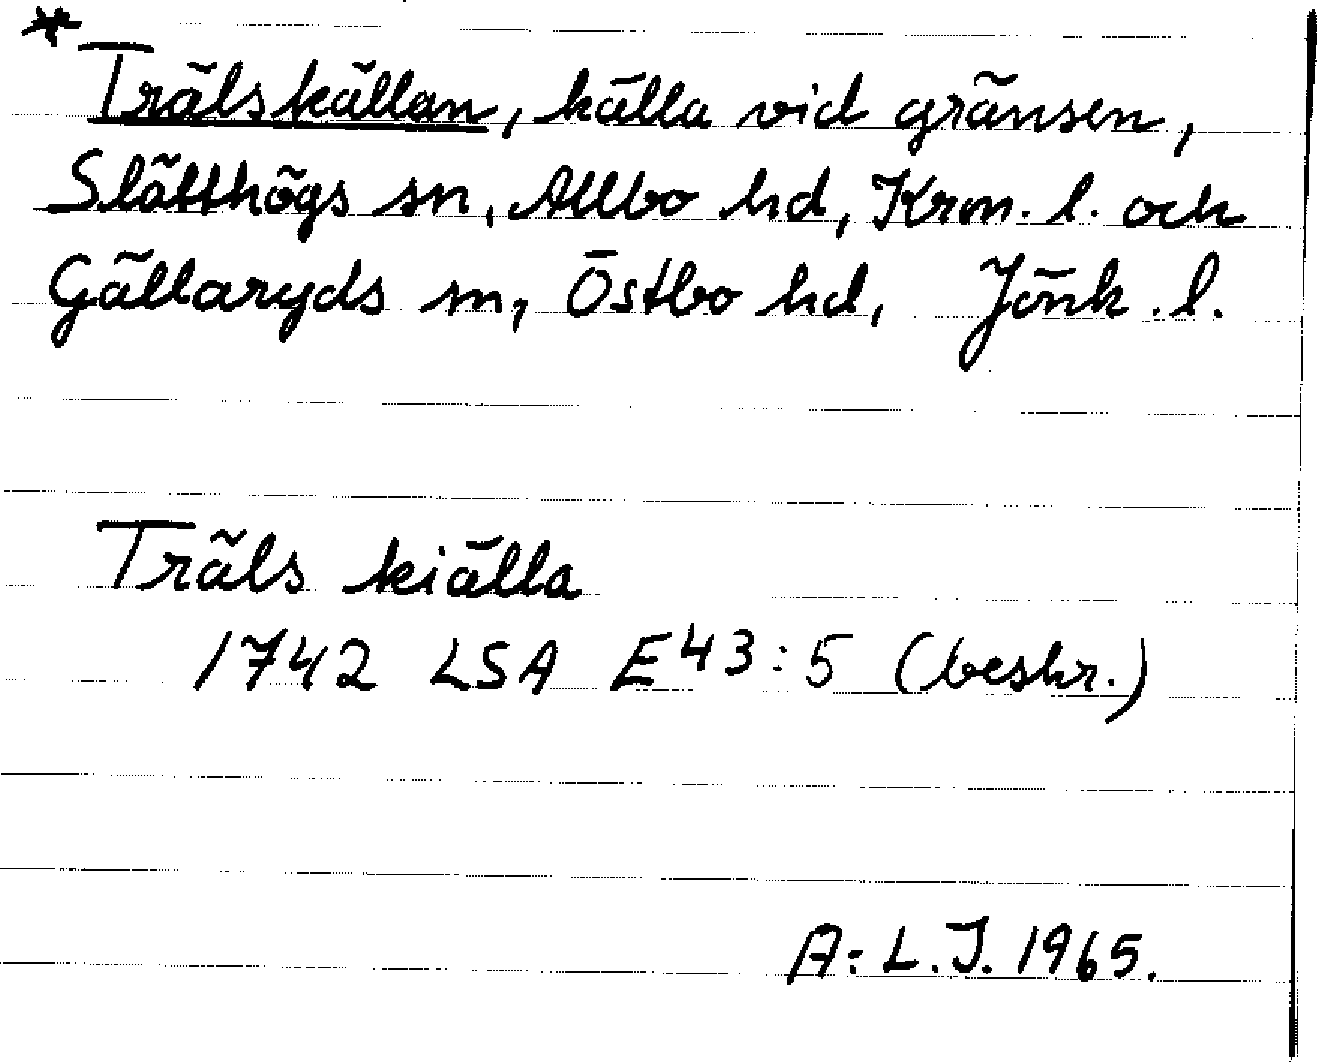 * Trälskällan, källa vid gränsen,
Slätthögs sn, Allbo hd, Kron. l. och
Gällaryds sn, Östbo hd, Jönk. l.
Träls kiälla
1742 LSA E43:5 (beskr.)
A.-L.J. 1965.